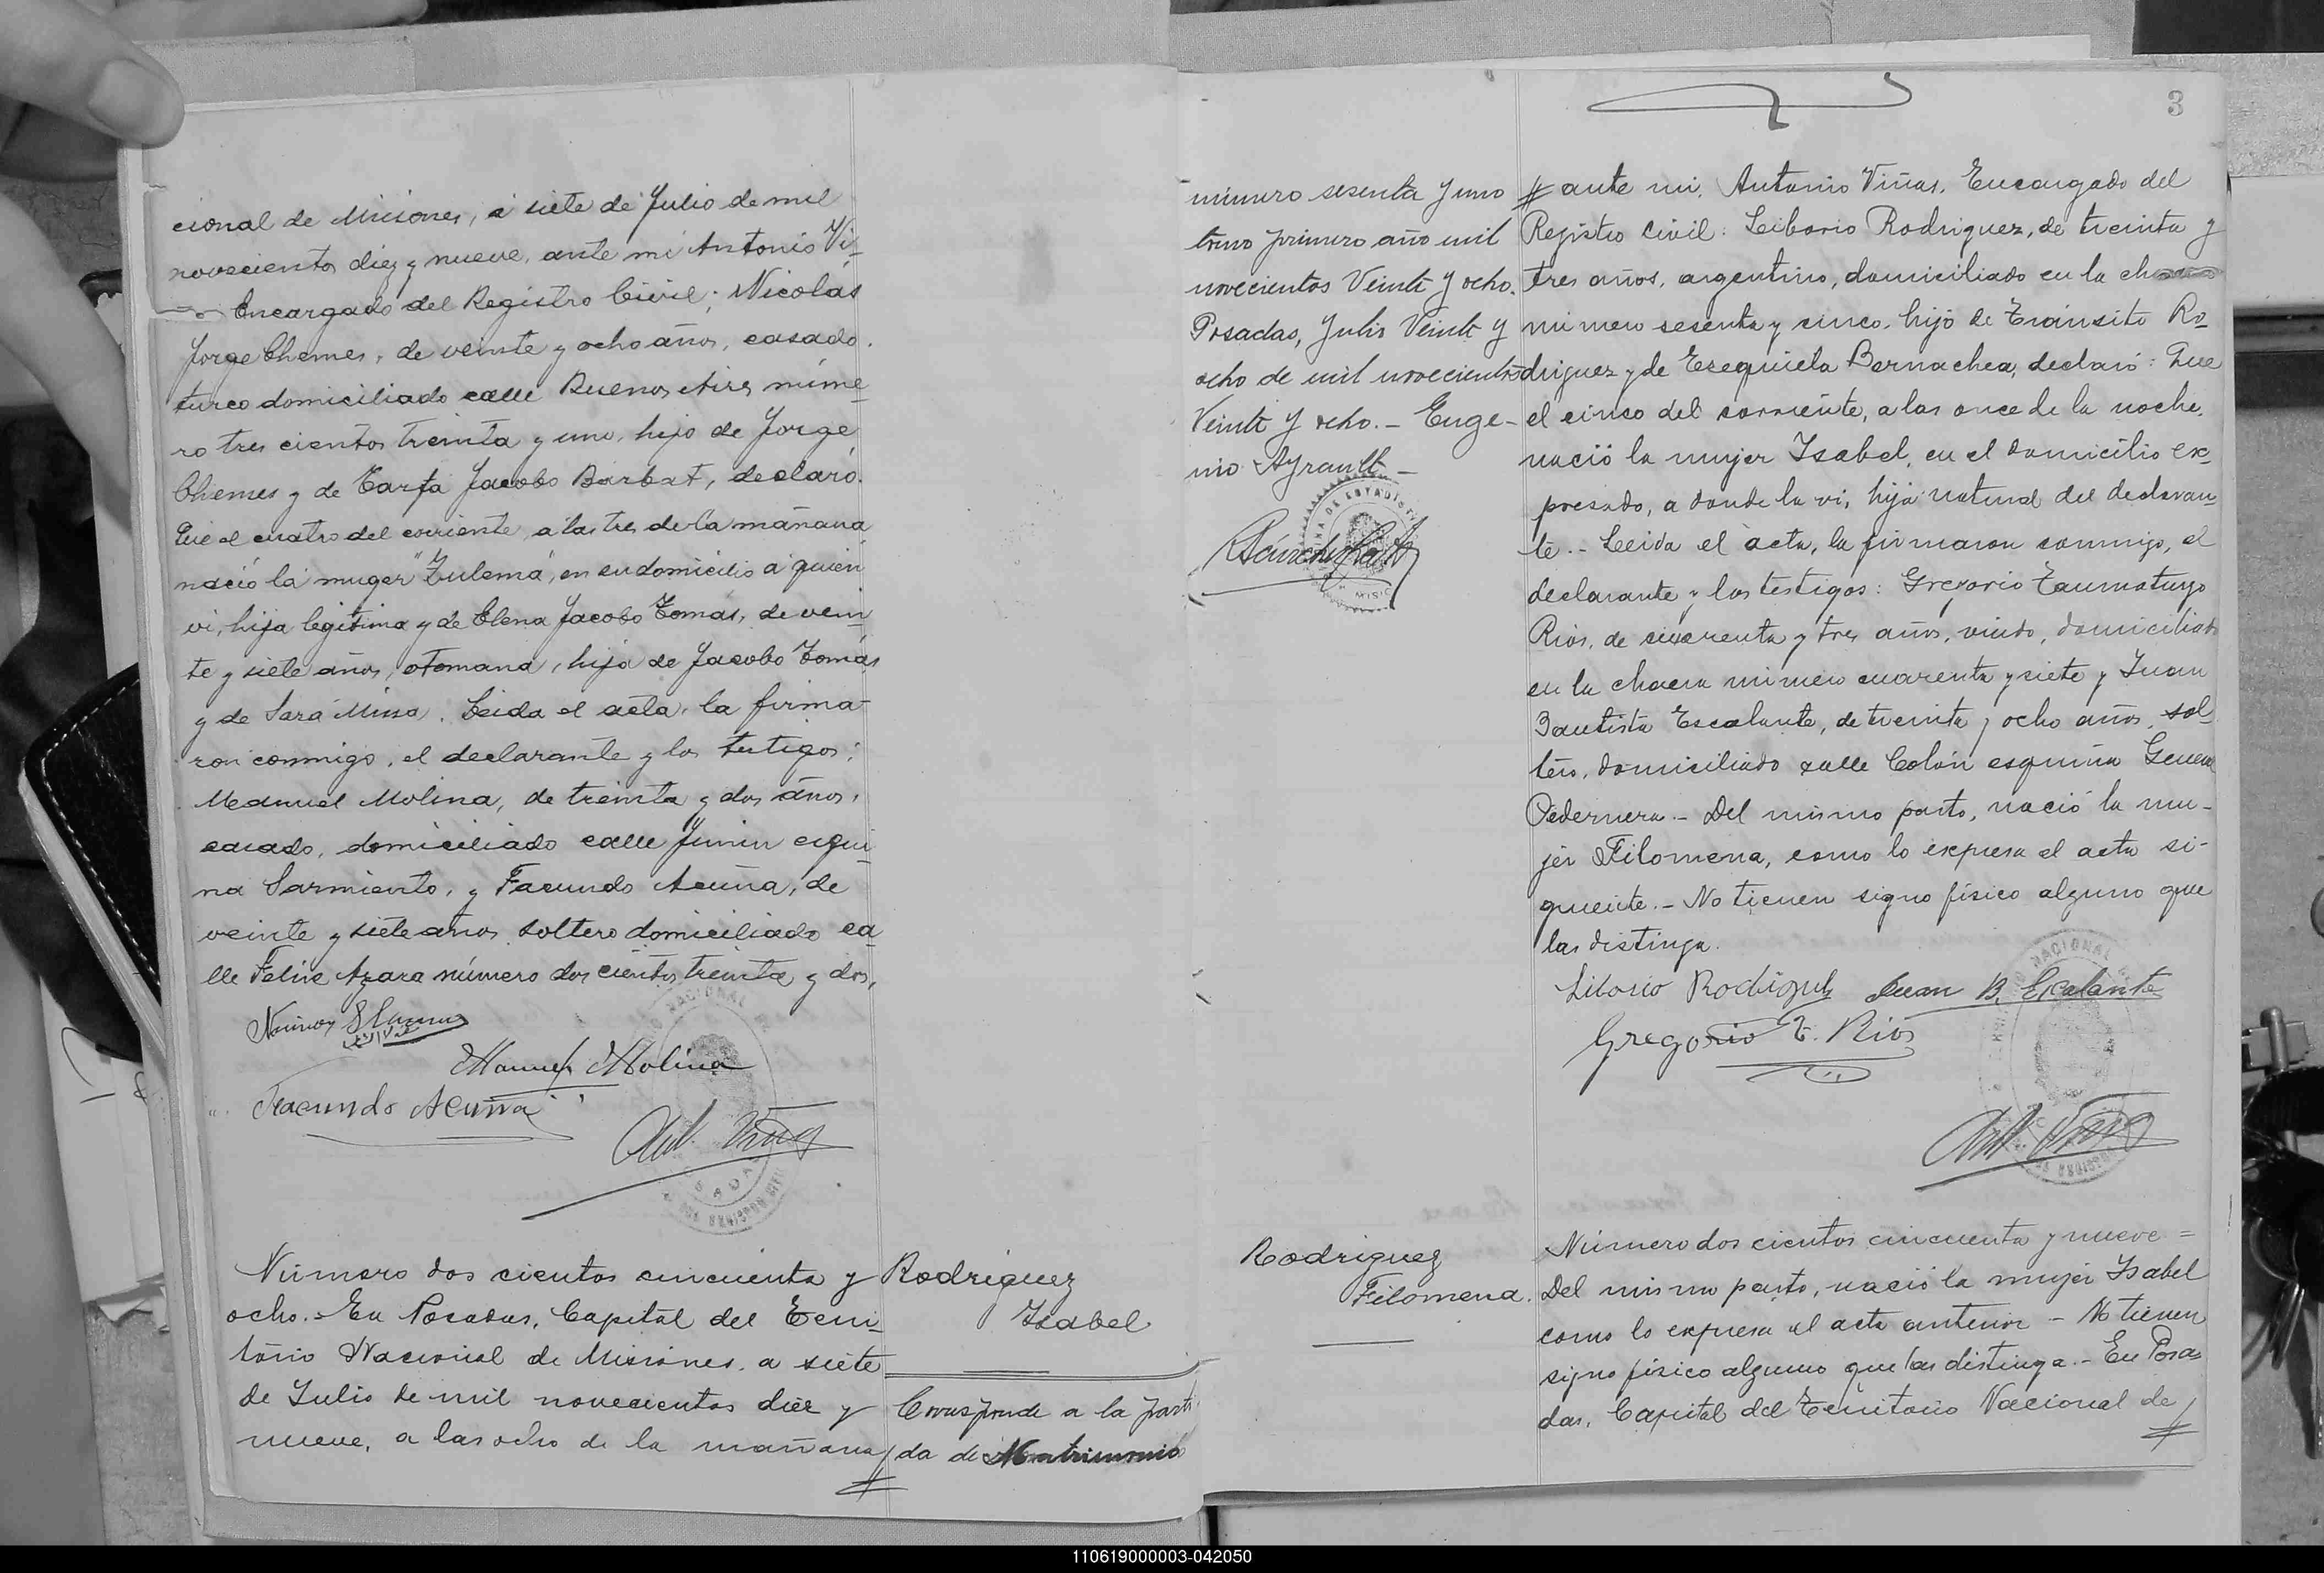 cional de Misiones, a siete de Julio de mil
novecientos diez y nueve, ante mi Antonio Vi-
Encargado del Registro Civil; Nicolás
Jorge Chemes, de veinte y ocho años, casado.
turco domiciliado calle Buenos Aires núme-
ro tres cientos treinta y uno, hijo de Jorge
Chemes y de Tarfa Jacobo Barbat, declaró.
Que el cuatro del corriente, a las tres de la mañana
nació la muger "Zulema", en su domicilio a quien
vi, hija legitima y de Elena Jacobo Tomas, de vein-
te y siete años, otomana, hija de Jacobo Tomás
y de Sara. Leida el acta, la firma-
ron conmigo, el declarante y los testigos:
Manuel Molina, de treinta y dos años,
casado, domiciliado calle Junin esqui-
na Sarmiento, y Facundo Acuña, de
veinte y siete años soltero domiciliado ca-
lle Felix Azara número dos cientos treinta y dos,
Manuel Molina
Facundo Acuña
Ant. Viñas
Número dos cientos cincuenta y
ocho.= En Posadas, Capital del Terri-
tório Nacional de Misiones, a siete
de Julio de mil novecientos diez y
nueve, a las ocho de la mañana
Rodriguez
Isabel
Corresponde a la parti
da de Matrimonio
número sesenta y uno
tomo primero año mil
novecientos Veinte y ocho.
Posadas, Julio Veinte y
ocho de mil novecientos
Veinte y ocho. - Euge-
nio Ayrault -
3
ante mi, Antonio Viñas, Encargado del
Registro Civil: Liborio Rodriguez, de treinta y
tres años, argentino, domiciliado en la
número sesenta y cinco, hijo de Tránsito Ro-
driguez y de Ezequiela Bernachea, declaró: Que
el cinco del corriente, a las once de la noche,
nació la mujer Isabel, en el domicilio ex-
presado, a donde la vi, hija natural del declaran-
te.- Leida el acta, la firmaron conmigo, el
declarante y los testigos: Gregorio Taumaturgo
Rios, de cuarenta y tres años, viudo, domiciliado
en la chacra número cuarenta y siete y Juan
Bautista Escalante, de treinta y ocho años, sol-
tero, domiciliado calle Colón esquina General
Pedernera.- Del mismo parto, nació la mu-
jer Filomena, como lo expresa el acta si-
guiente.- No tienen signo físico alguno que
las distinga.
Liborio Rodriguez Juan B. Escalante
Gregorio T. Rios
Ant. Viñas
Rodriguez
Filomena.
Número dos cientos cincuenta y nueve =
Del mismo parto, nació la mujer Isabel
como lo expresa el acta anterior - No tienen
signo físico alguno que las distinga.- En Posa-
das, Capital del Territorio Nacional de
110619000003-042050